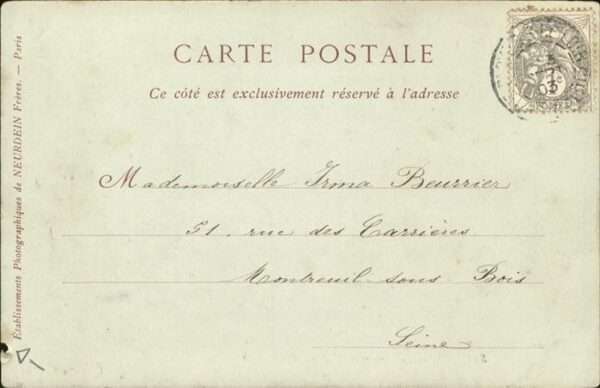 CARTE POSTALE
Ce côté est exclusivement réservé à l'adresse
Mademoiselle Irma Beurrier
51, rue des Carrières
Montreuil sous Bois
Seine
Etablissements Photographiques de NEURDEIN Frères. — Paris